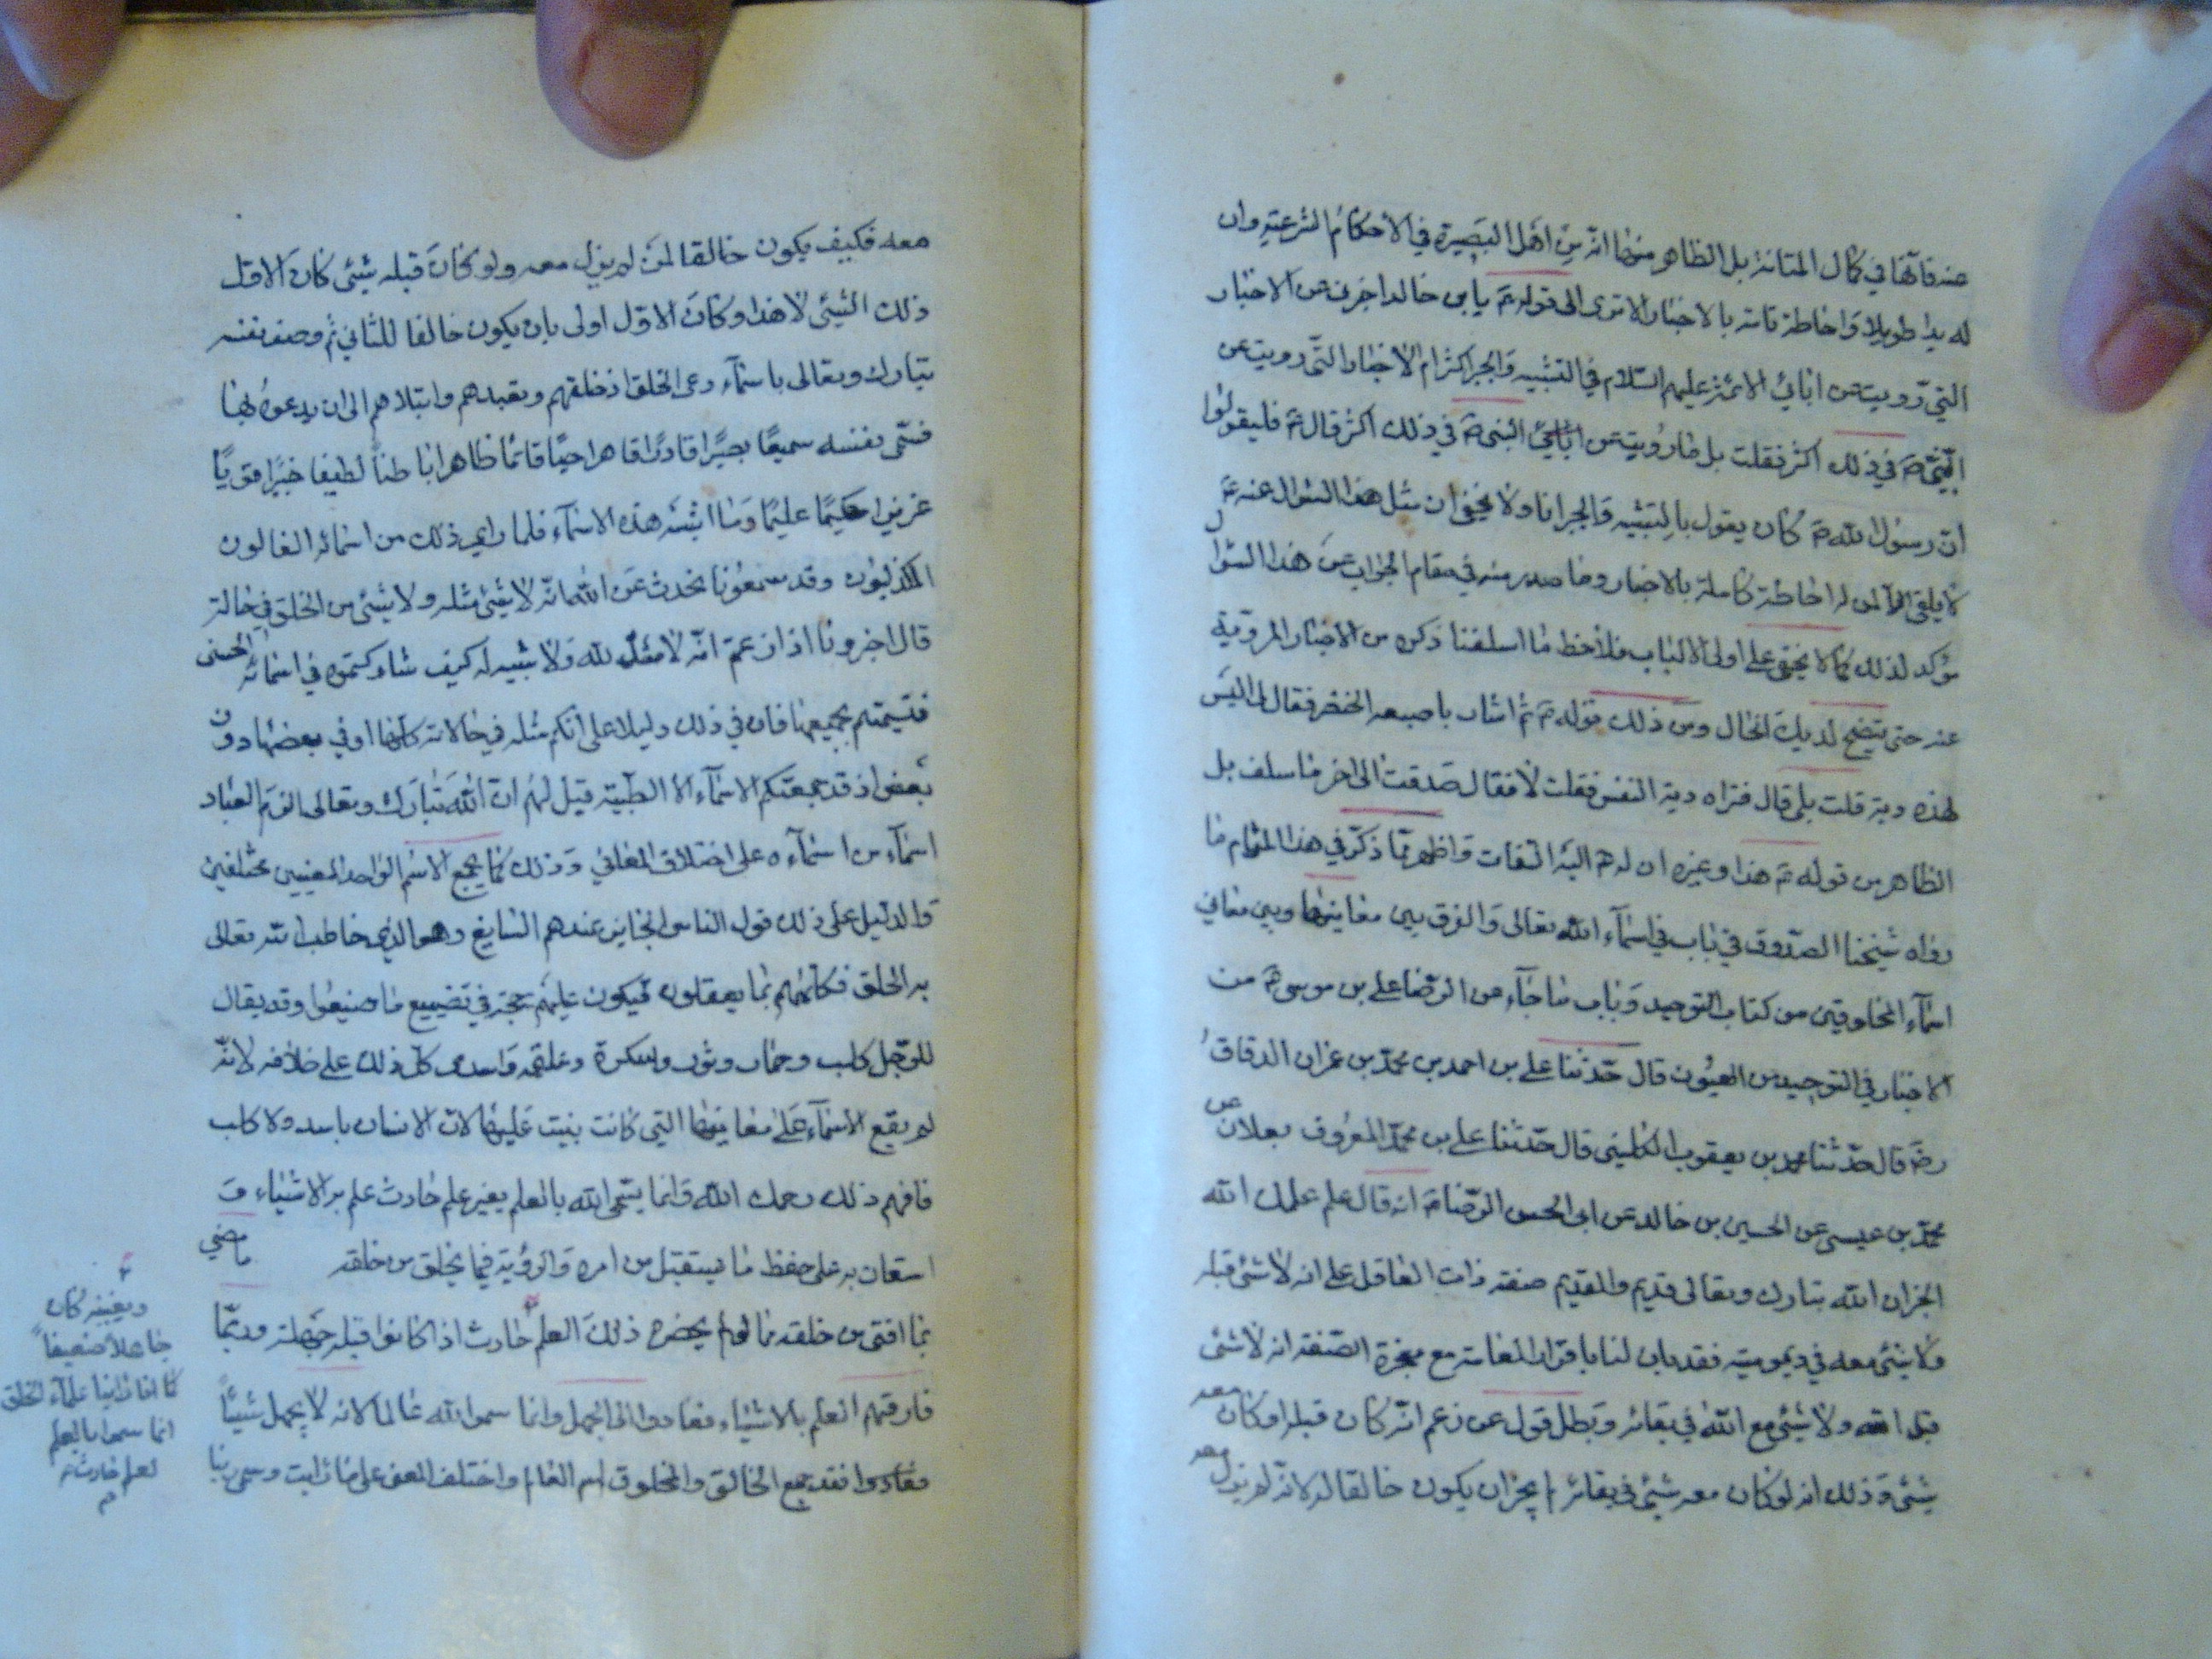 عنه فانها في كمال المتانة بل الظاهر منها انه من اهل البصيرة في الاحكام الشرعية وان
له يدا طويلا واحاطة تامة بالاخبار الا ترى الى قوله ع يا بن خالد اخبرني عن الاخبار
التي رويت عن ابائي الائمة عليهم السلام في التشبيه والجبر اكثر ام الاخبار التي رويت عن
النبي ص في ذلك اكثر فقلت بل ما رويت عن ابائي النبي ص في ذلك اكثر قال ع فليقولوا
ان رسول الله ص كان يقول بالتشبيه والجبر اذا ولا يخفى ان مثل هذا السؤال عنه ع
لا يلقى الا لمن له احاطة كاملة بالاخبار وما صدر منه في مقام الجواب عن هذا السؤال
مؤكد لذلك كما لا يخفى على اولى الالباب فلاحظ ما اسلفنا ذكره من الاخبار المروية
عنه حتى يتضح لديك الحال ومن ذلك قوله ع ثم اشار باصبعه الخنصر فقال لى اليس
لهذه دية قلت بلى قال فتراه دية النفس فقلت لا فقال صدقت الى اخر ما سلف بل
الظاهر من قوله ع هذا وغيره ان له ع اليه التفات واظهر مما ذكر في هذا المقام ما
رواه شيخنا الصدوق في باب في اسماء الله تعالى والفرق بين معانيها وبين معاني
اسماء المخلوقين من كتاب التوحيد وباب ما جاء عن الرضا على بن موسى ع من
الاخبار في التوحيد من العيون قال حدثنا على بن احمد بن محمد بن عمران الدقاق
رض قال حدثنا محمد بن يعقوب الكليني قال حدثنا على بن محمد المعروف بعلان عن
محمد بن عيسى عن الحسين بن خالد عن ابى الحسن الرضا ع انه قال علم علمك الله
الخير ان الله تبارك وتعالى قديم والقديم صفة ذات العاقل على انه لا شئ قبله
ولا شئ معه في ديموميته فقد بان لنا باقرار العامة مع معجزة الصفة انه لا شئ
قبل الله ولا شئ مع الله في بقائه وبطل قول من زعم انه كان قبله او كان معه
شئ وذلك انه لو كان معه شئ في بقائه لم يجز ان يكون خالقا له لانه لم يزل معه
معه فكيف يكون خالقا لمن لم يزل معه ولو كان قبله شئ كان الاول
ذلك الشئ لا هذا وكان الاول اولى بان يكون خالقا للثاني ثم وصف نفسه
تبارك وتعالى باسماء دعى الخلق اذ خلقهم وتعبدهم وابتلاهم الى ان يدعوه بها
فسمى نفسه سميعا بصيرا قادرا قاهرا حيا قائما ظاهرا باطنا لطيفا خبيرا قويا
عزيزا حكيما عليما وما اشبه هذه الاسماء فلما راى ذلك من اسمائه الغالون
المكذبون وقد سمعونا نحدث عن الله انه لا شئ مثله ولا شئ من الخلق في حالته
قال اخبرونا اذا زعمتم انه لا مثل لله ولا شبيه له كيف شاركتموه في اسمائه الحسنى
فتسميتم بجميعها فان في ذلك دليلا على انكم مثله في حالاته كلها او في بعضها دون
بعض اذ قد جمعتكم الاسماء الطيبة قيل لهم ان الله تبارك وتعالى الزم العباد
اسماء من اسمائه على اختلاف المعاني وذلك كما يجمع الاسم الواحد المعنيين مختلفين
والدليل على ذلك قول الناس الجايز عندهم السايغ وهو الذي خاطب الله تعالى
به الخلق فكلمهم بما يعقلون فيكون عليهم حجة في تضييع ما ضيعوا وقد يقال
للرجل كلب وحمار وثور وسكرة وعلقمة واسد كل ذلك على خلافه لانه
لم يقع الاسماء على معانيها التي كانت بنيت عليها لان الانسان باسد ولا كلب
فافهم ذلك رحمك الله وانما يسمى الله بالعلم بغير علم حادث علم به الاشياء و
استعان به على حفظ ما يستقبل من امره والرؤية فيما يخلق من خلقه ما مضى
بما افنى من خلقه مما لو لم يحضره ذلك العلم حادث اذا كانوا قبله جهلة وربما
فارقهم العلم بالاشياء فعادوا الى الجهل وانما سمى الله عالما لانه لا يجهل شيئا
فقد جمع الخالق والمخلوق اسم العلم واختلف المعنى على ما رايت وسمى ربنا
ويغيبه كان
جاهلا ضعيفا
كما انا راينا علماء الخلق
انما سموا بالعلم
لعلم حادث